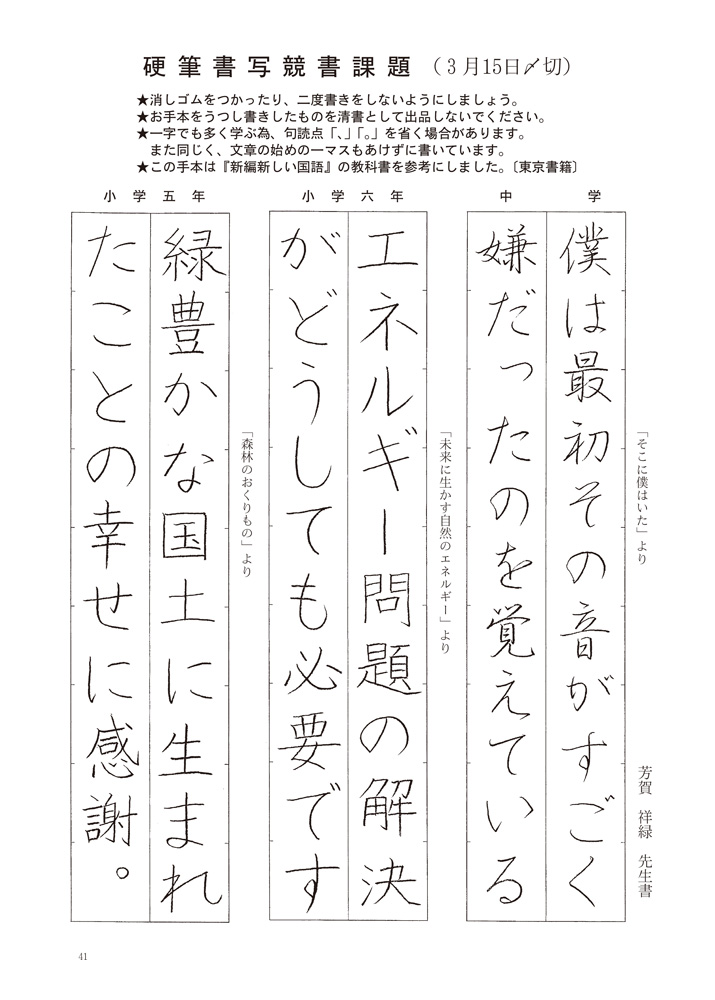 硬筆書写競書課題（3月15日〆切）
★消しゴムをつかったり、二度書きをしないようにしましょう。
★お手本をうつし書きしたものを清書として出品しないでください。
★一字でも多く学ぶ為、句読点「、」「。」を省く場合があります。
また同じく、文章の始めの一マスもあけずに書いています。
★この手本は『新編新しい国語』の教科書を参考にしました。〔東京書籍〕
中学
「そこに僕はいた」より
芳賀 祥緑 先生書
僕は最初その音がすごく
嫌だったのを覚えている
小学六年
「未来に生かす自然のエネルギー」より
エネルギー問題の解決
がどうしても必要です
小学五年
「森林のおくりもの」より
緑豊かな国土に生まれ
たことの幸せに感謝。
41